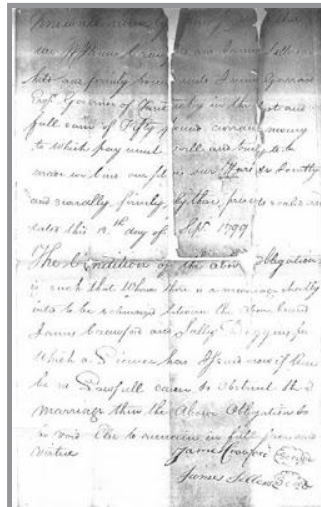 Know all men by these
we James Crawford and James Sellers
are firmly bound unto James Garrard
Esqr Governor of Kentucky in the Just and
full sum of Fifty pound current money
to which pay ment will and truly to be
made we bind our selves our Heirs &c Jointly
and severally firmly by these presents sealed and
dated this 12th day of Sept 1799
The Condition of the above obligation
is such that Whereas there is a marriage shortly
intd to be solemnized between the above bound
James Crawford and Sally Diggins for
which a Licence has Issued now if there
be no Lawfull cause to obstruct the
marriage then the Above Obligation to
be void Else to remain in full force and
virtue
James Crawford
James Sellers